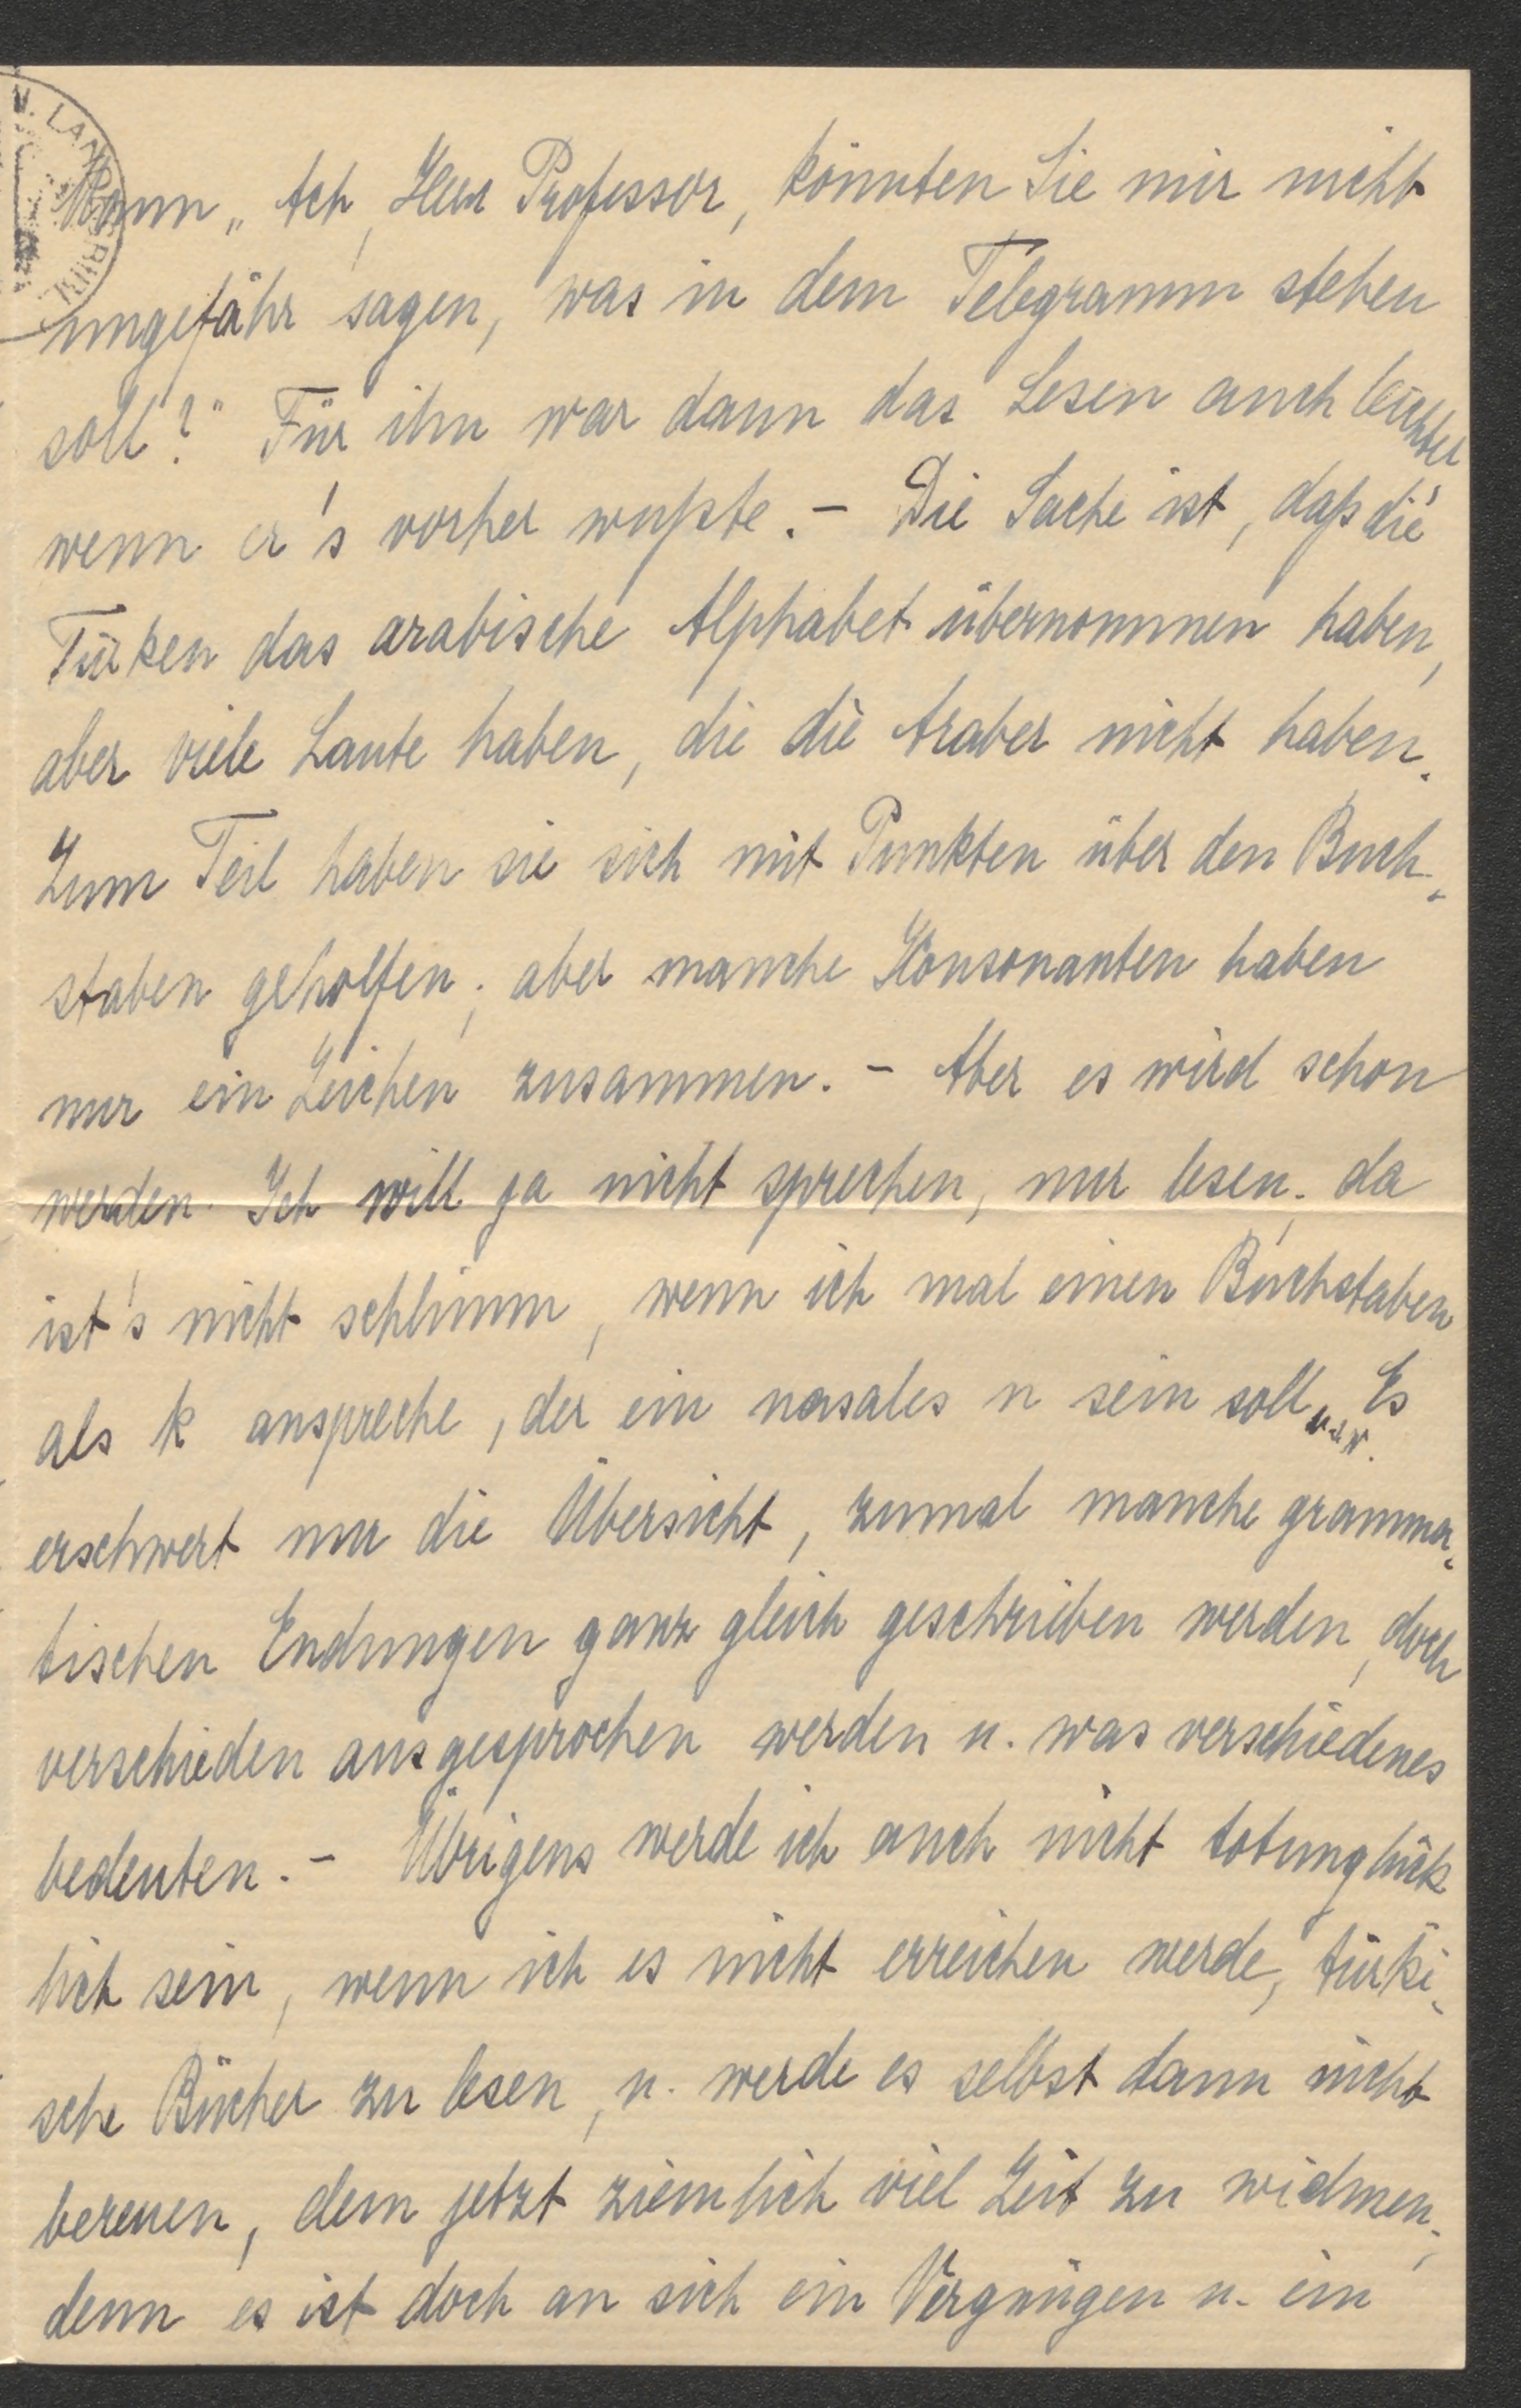 Mann „Ach, Herr Professor, könnten Sie mir nicht
ungefähr sagen, was in dem Telegramm stehen
soll?" Für ihn war dann das Lesen auch leichter
wenn er's vorher wußte. – Die Sache ist, daß die
Türken das arabische Alphabet übernommen haben,
aber viele Laute haben, die die Araber nicht haben.
Zum Teil haben sie sich mit Punkten über den Buch-
staben geholfen; aber manche Konsonanten haben
nur ein Zeichen zusammen. – Aber es wird schon
werden. Ich will ja nicht sprechen, nur lesen; da
ist's nicht schlimm, wenn ich mal einen Buchstaben
als k anspreche, der ein nasales n sein soll u.s.w. Es
erschwert nur die Übersicht, zumal manche gramma-
tischen Endungen ganz gleich geschrieben werden, doch
verschieden ausgesprochen werden u. was verschiedenes
bedeuten. – Übrigens werde ich auch nicht totunglück
lich sein, wenn ich es nicht erreichen werde, türki-
sche Bücher zu lesen, u. werde es selbst dann nicht
bereuen, dem jetzt ziemlich viel Zeit zu widmen;
denn es ist doch an sich ein Vergnügen u. ein